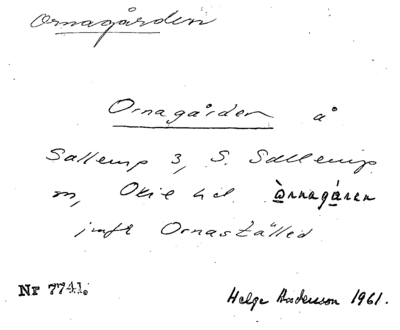 Ornagården
Ornagården å
Sallerup 3, S. Sallerup
m, Oxie hd. ò̀rnagá̀ren
jmfr Ornastället
Nr 7741.
Helge Andersson 1961.